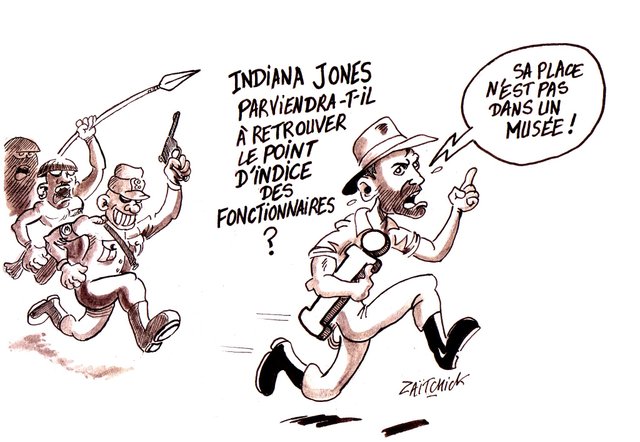 INDIANA JONES
PARVIENDRA-T-IL
À RETROUVER
LE POINT
D'INDICE
DES
FONCTIONNAIRES
?
SA PLACE
N'EST PAS
DANS UN
MUSÉE !
ZAÏTCHICK